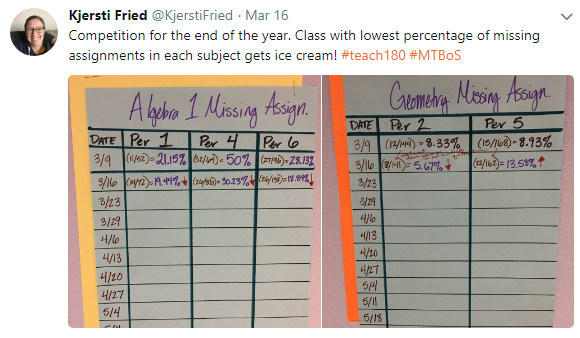 Kjersti Fried @KjerstiFried · Mar 16
Competition for the end of the year. Class with lowest percentage of missing
assignments in each subject gets ice cream! #teach180 #MTBoS
Algebra 1 Missing Assign.
DATE Per 1 Per 4 Per 6
3/9 (11/52)=21.15% (32/64)=50% (27/96)=28.13%
3/16 (14/72)=19.44%↓ (26/86)=30.23%↓ (26/138)=18.84%↓
3/23
3/29
4/6
4/13
4/20
4/27
5/4
5/11
Geometry Missing Assign.
DATE Per 2 Per 5
3/9 (12/144)=8.33% (15/168)=8.93%
3/16 (8/141)=5.67%↓ (22/162)=13.58%↑
3/23
3/29
4/6
4/13
4/20
4/27
5/4
5/11
5/18